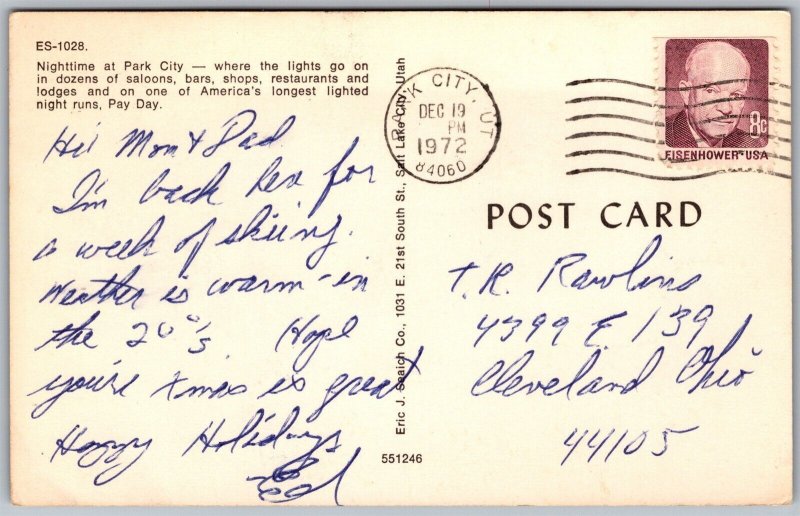 ES-1028.
Nighttime at Park City — where the lights go on
in dozens of saloons, bars, shops, restaurants and
lodges and on one of America's longest lighted
night runs, Pay Day.
Hi! Mom & Dad
I'm back here for
a week of skiing.
Weather is warm - in
the 20°'s. Hope
your's Xmas is great
Happy Holidays
Ed
Eric J. Seaich Co., 1031 E. 21st South St., Salt Lake City, Utah
551246
PARK CITY, UT
DEC 19
PM
1972
84060
8c
EISENHOWER·USA
POST CARD
T.R. Rawlins
4399 E. 139
Cleveland Ohio
44105